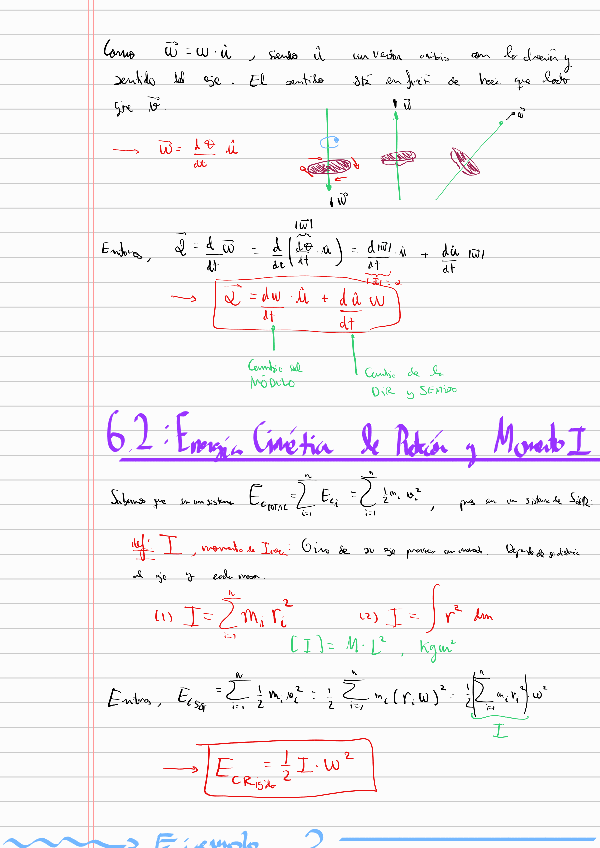 Como w⃗ = w · û, siendo û un vector unitario con la dirección y
sentido del eje. El sentido está en función de hacia que lado
gire v⃗.
→ w⃗ = dθ/dt û
w⃗ w⃗ w⃗
|w⃗|
Entonces, α⃗ = d/dt w⃗ = d/dt (dθ/dt · û) = d|w⃗|/dt · û + dû/dt |w⃗|
→ α⃗ = dw/dt · û + dû/dt w
Cambio del Cambio de la
MÓDULO DIR y SENTIDO
6.2: Energía Cinética de Rotación y Momento I
Sabemos que en un sistema E_cTOTAL = Σ_{i=1}^{n} E_ci = Σ_{i=1}^{n} ½ m_i v_i², pues en un sistema de
def: I, momento de Inercia:
el eje y cada masa.
(1) I = Σ_{i=1}^{n} m_i r_i² (2) I = ∫ r² dm
[I] = M · L², kg m²
Entonces, E_c = Σ_{i=1}^{n} ½ m_i v_i² = ½ Σ_{i=1}^{n} m_i (r_i w)² = ½ [Σ_{i=1}^{n} m_i r_i²] w²
I
→ E_CRígido = ½ I · w²
Ejemplo 2